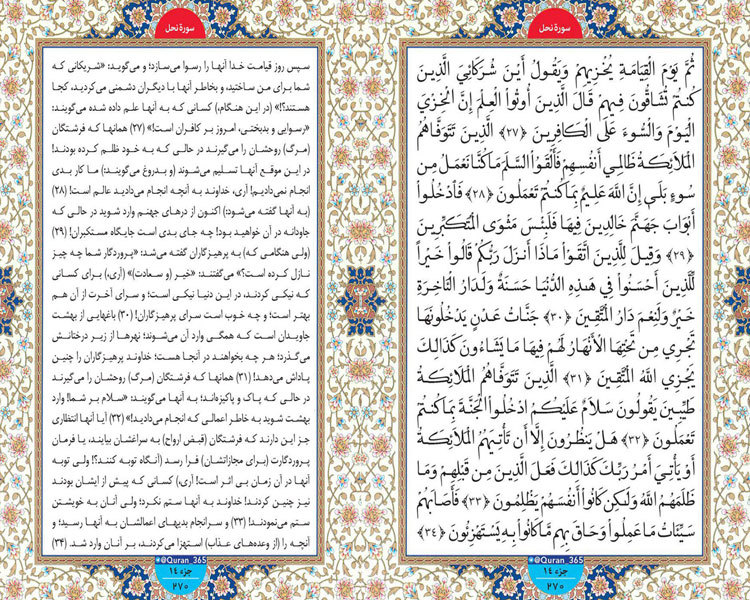 سورهٔ نحل
ثُمَّ يَوْمَ الْقِيَامَةِ يُخْزِيهِمْ وَيَقُولُ أَيْنَ شُرَكَائِيَ الَّذِينَ
كُنتُمْ تُشَاقُّونَ فِيهِمْ قَالَ الَّذِينَ أُوتُواْ الْعِلْمَ إِنَّ الْخِزْيَ
الْيَوْمَ وَالْسُّوءَ عَلَى الْكَافِرِينَ ﴿۲۷﴾ الَّذِينَ تَتَوَفَّاهُمُ
الْمَلائِكَةُ ظَالِمِي أَنفُسِهِمْ فَأَلْقَوُاْ السَّلَمَ مَا كُنَّا نَعْمَلُ مِن
سُوءٍ بَلَى إِنَّ اللَّهَ عَلِيمٌ بِمَا كُنتُمْ تَعْمَلُونَ ﴿۲۸﴾ فَادْخُلُواْ
أَبْوَابَ جَهَنَّمَ خَالِدِينَ فِيهَا فَلَبِئْسَ مَثْوَى الْمُتَكَبِّرِينَ
﴿۲۹﴾ وَقِيلَ لِلَّذِينَ اتَّقَوْاْ مَاذَا أَنزَلَ رَبُّكُمْ قَالُواْ خَيْرًا
لِّلَّذِينَ أَحْسَنُواْ فِي هَذِهِ الدُّنْيَا حَسَنَةٌ وَلَدَارُ الآخِرَةِ
خَيْرٌ وَلَنِعْمَ دَارُ الْمُتَّقِينَ ﴿۳۰﴾ جَنَّاتُ عَدْنٍ يَدْخُلُونَهَا
تَجْرِي مِن تَحْتِهَا الأَنْهَارُ لَهُمْ فِيهَا مَا يَشَاءُونَ كَذَلِكَ
يَجْزِي اللَّهُ الْمُتَّقِينَ ﴿۳۱﴾ الَّذِينَ تَتَوَفَّاهُمُ الْمَلائِكَةُ
طَيِّبِينَ يَقُولُونَ سَلامٌ عَلَيْكُمُ ادْخُلُواْ الْجَنَّةَ بِمَا كُنتُمْ
تَعْمَلُونَ ﴿۳۲﴾ هَلْ يَنظُرُونَ إِلاَّ أَن تَأْتِيَهُمُ الْمَلائِكَةُ
أَوْ يَأْتِيَ أَمْرُ رَبِّكَ كَذَلِكَ فَعَلَ الَّذِينَ مِن قَبْلِهِمْ وَمَا
ظَلَمَهُمُ اللَّهُ وَلَكِن كَانُواْ أَنفُسَهُمْ يَظْلِمُونَ ﴿۳۳﴾ فَأَصَابَهُمْ
سَيِّئَاتُ مَا عَمِلُواْ وَحَاقَ بِهِم مَّا كَانُواْ بِهِ يَسْتَهْزِئُونَ ﴿۳۴﴾
@Quran_365
جزء ۱۴
۲۷۰
سورهٔ نحل
سپس روز قیامت خدا آنها را رسوا می‌سازد؛ و می‌گوید: «شریکانی که
شما برای من ساختید، و بخاطر آنها با دیگران دشمنی می‌کردید، کجا
هستند؟!» (در این هنگام،) کسانی که به آنها علم داده شده می‌گویند:
«رسوایی و بدبختی، امروز بر کافران است!» (۲۷) همانها که فرشتگان
(مرگ) روحشان را می‌گیرند در حالی که به خود ظلم کرده بودند!
در این موقع آنها تسلیم می‌شوند (و بدروغ می‌گویند:) ما کار بدی
انجام نمی‌دادیم! آری، خداوند به آنچه انجام می‌دادید عالم است! (۲۸)
(به آنها گفته می‌شود:) اکنون از درهای جهنم وارد شوید در حالی که
جاودانه در آن خواهید بود! چه جای بدی است جایگاه مستکبران! (۲۹)
(ولی هنگامی که) به پرهیزگاران گفته می‌شد: «پروردگار شما چه چیز
نازل کرده است؟» می‌گفتند: «خیر (و سعادت)» (آری،) برای کسانی
که نیکی کردند، در این دنیا نیکی است؛ و سرای آخرت از آن هم
بهتر است؛ و چه خوب است سرای پرهیزگاران! (۳۰) باغهایی از بهشت
جاویدان است که همگی وارد آن می‌شوند؛ نهرها از زیر درختانش
می‌گذرد؛ هر چه بخواهند در آنجا هست؛ خداوند پرهیزگاران را چنین
پاداش می‌دهد! (۳۱) همانها که فرشتگان (مرگ) روحشان را می‌گیرند
در حالی که پاک و پاکیزه‌اند؛ به آنها می‌گویند: «سلام بر شما! وارد
بهشت شوید به خاطر اعمالی که انجام می‌دادید!» (۳۲) آیا آنها انتظاری
جز این دارند که فرشتگان (قبض ارواح) به سراغشان بیایند، یا فرمان
پروردگارت (برای مجازاتشان) فرا رسد (آنگاه توبه کنند؟! ولی توبه
آنها در آن زمان بی اثر است! آری،) کسانی که پیش از ایشان بودند
نیز چنین کردند! خداوند به آنها ستم نکرد؛ ولی آنان به خویشتن
ستم می‌نمودند! (۳۳) و سرانجام بدیهای اعمالشان به آنها رسید؛ و
آنچه را (از وعده‌های عذاب) استهزا می‌کردند، بر آنان وارد شد. (۳۴)
@Quran_365
جزء ۱۴
۲۷۰